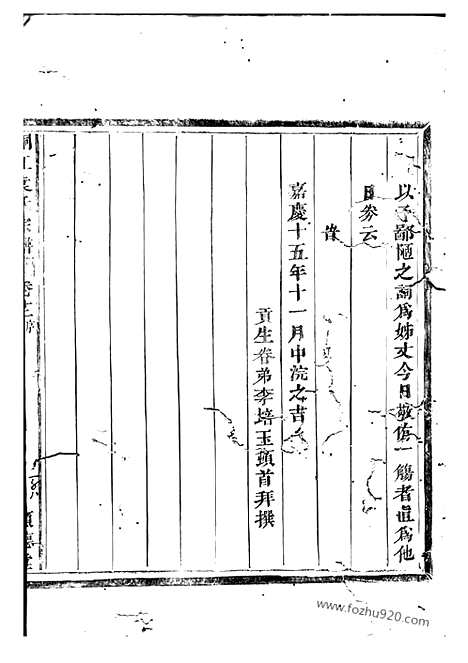 以予鄙陋之詞爲姊丈今日敬侑一觴者直爲他
日券云
嘉慶十五年十一月中浣之吉
貢生眷弟李培玉頓首拜撰
宗譜
www.fozhu920.com